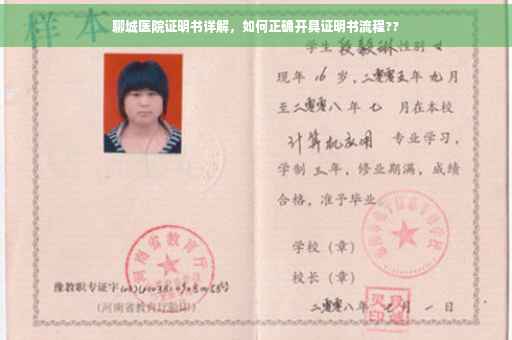 聊城医院证明书详解，如何正确开具证明书流程??
样本
学生段毅琳性别女
现年16岁，二零零五年九月
至二零零八年七月在本校
计算机应用 专业学习，
学制三年，修业期满，成绩
合格，准予毕业。
学校（章）
校长（章）
二零零八年七月一日
河南省教育厅
豫教职专证字
（河南省教育厅验印）